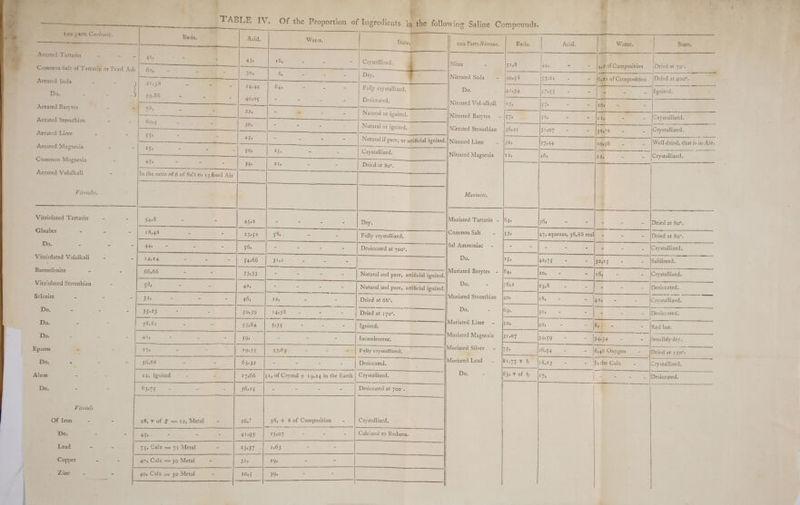 TABLE IV. Of the Proportion of Ingredients in the following Saline Compounds.
100 Parts Carbonat. Basis. Acid. Water. State.
Aerated Tartarin 41, 43, 16, Crystallized.
Common Salt of Tartarin or Pearl Ash 60, 30, 6, Dry.
Aerated Soda 21,58 14,42 64, Fully crystallized.
Do. 59,86 40,05 Desiccated.
Aerated Barytes 78, 22, Natural or ignited.
Aerated Strontian 30, Natural or ignited.
Aerated Lime 55, 45, Natural if pure, or artificial ignited.
Aerated Magnesia 25, 50, 25, Crystallized.
Common Magnesia 45, 34, 21, Dried at 80°.
Aerated Volalkali In the ratio of 6 of Salt to 13 fixed Air
Vitriolic.
Vitriolated Tartarin 54,8 45,2 Dry.
Glauber 18,48 23,52 58, Fully crystallized.
Do. 44, 56, Desiccated at 700°.
Vitriolated Volalkali 14,24 54,66 31,1
Baroselenite 66,66 33,33 Natural and pure, artificial ignited.
Vitriolated Strontian 58, 42, Natural and pure, artificial ignited.
Selenite 32, 46, 22, Dried at 66°.
Do. 35,23 50,39 14,38 Dried at 170°.
Do. 38,81 55,84 5,35 Ignited.
Do. 41, 59, Incandescent.
Epsom 17, 29,35 53,65 Fully crystallized.
Do. 36,68 63,32 Desiccated.
Alum 12, Ignited 17,66 51, of Crystal + 19,24 in the Earth Crystallized.
Do. 63,75 36,25 Desiccated at 700°.
Vitriols
Of Iron 28, = 12, Metal 26, 38, + 8 of Composition Crystallized.
Do. 45, 41,93 13,07 Calcined to Redness.
Lead 75, Calx = 71 Metal 23,37 1,63
Copper 40, Calx = 30 Metal 31, 29,
Zinc 40, Calx = 30 Metal 20,5 39,
100 Parts Nitrous. Basis. Acid. Water. State.
Nitre 51,8 44, 4,2 of Composition Dried at 70°.
Nitrated Soda 40,58 53,21 6,21 of Composition Dried at 400°.
Do. 42,34 57,55 Ignited.
Nitrated Vol-alkali 23, 57, 20,
Nitrated Barytes 57, 32, 11, Crystallized.
Nitrated Strontian 36,21 31,07 32,72 Crystallized.
Nitrated Lime 32, 57,44 10,56 Well dried, that is in Air.
Nitrated Magnesia 22, 46, 22, Crystallized.
Muriatic.
Muriated Tartarin 64, 36, Dried at 80°.
Common Salt 53, 47, aqueous, 38,88 real Dried at 80°.
Sal Ammoniac Crystallized.
Do. 25, 42,75 32,25 Sublimed.
Muriated Barytes 64, 20, 16, Crystallized.
Do. 76,2 23,8 Desiccated.
Muriated Strontian 40, 18, 42, Crystallized.
Do. 69, 31, Desiccated.
Muriated Lime 50, 42, 8, Red hot.
Muriated Magnesia 31,07 34,59 34,34 Sensibly dry.
Muriated Silver 75, 16,54 8,46 Oxygen Dried at 130°.
Muriated Lead 81,77 18,23 In the Calx Crystallized.
Do. 83, 17, Desiccated.